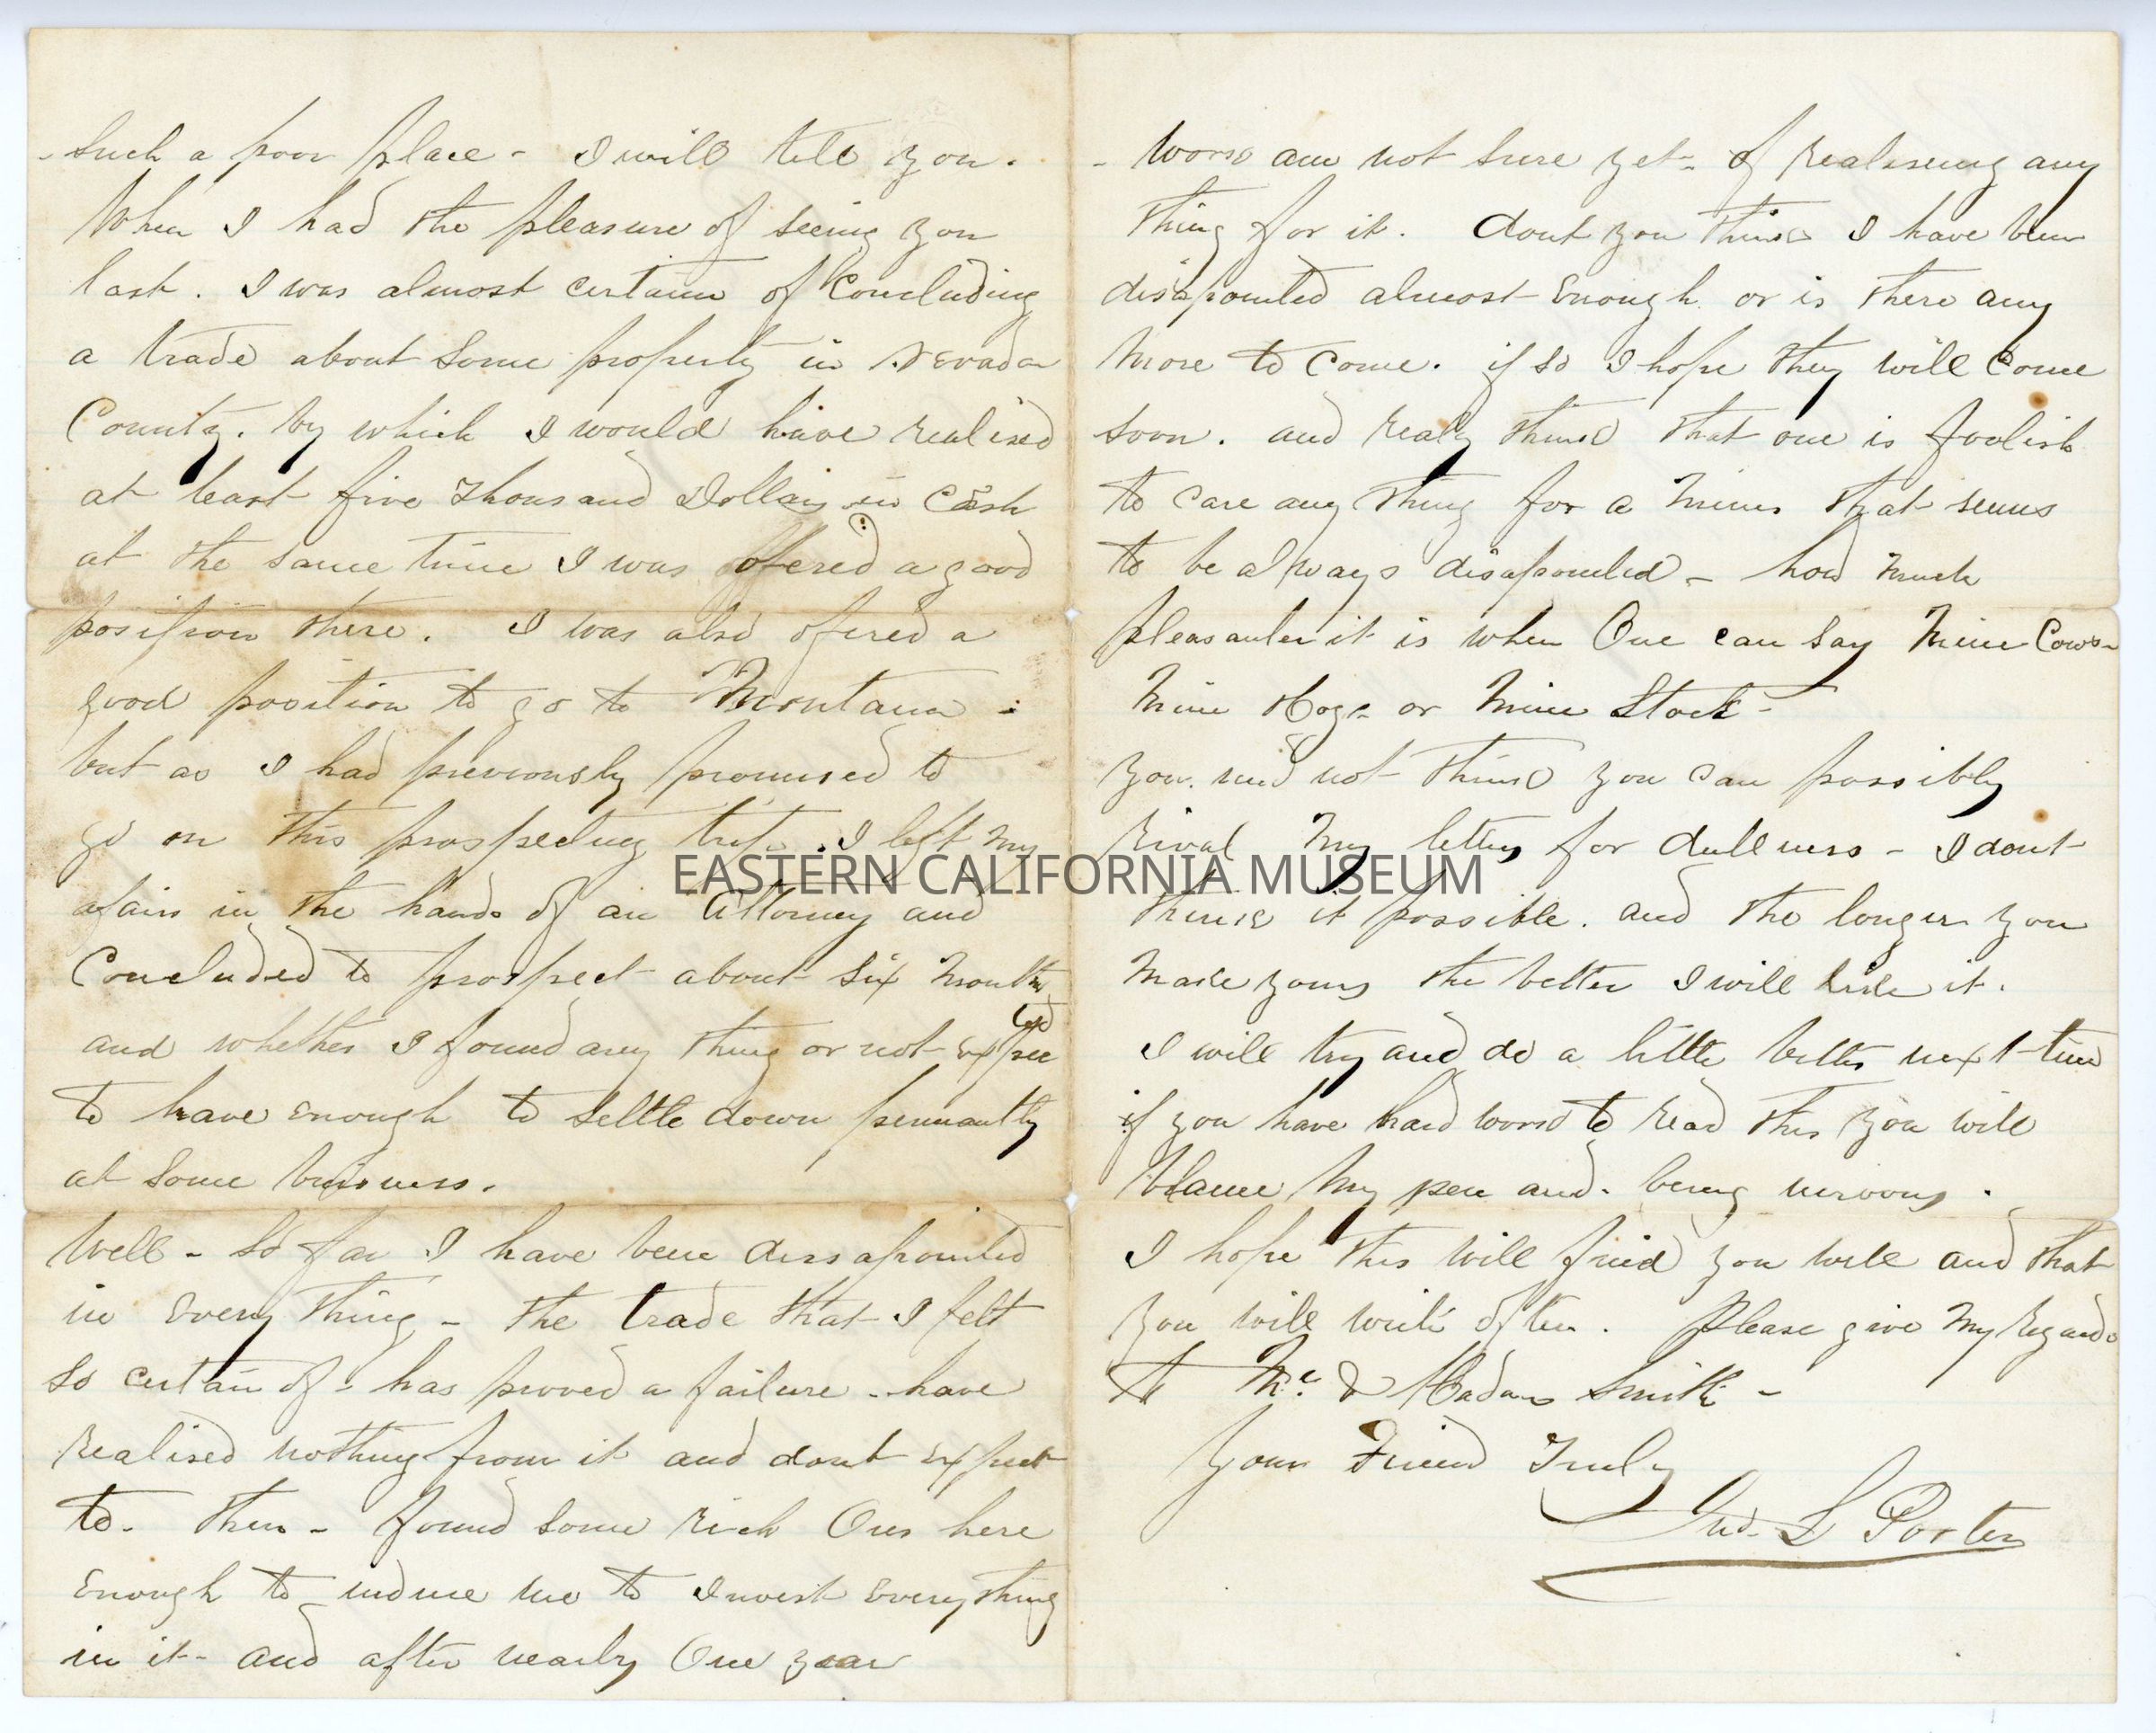 - Such a poor place - I will tell you.
When I had the pleasure of seeing you
last. I was almost certain of Concluding
a trade about Some property in Nevada
County. by which I would have realised
at least five Thousand Dollars in Cash
at the same time I was offered a good
position there. I was also ofered a
good position to go to Montana -
but as I had previously promised to
go on this prospecting trip. I left my
afairs in the hands of an Attorney and
Concluded to prospect about six months
and whether I found any thing or not Expected
to have enough to Settle down permantly
at Some business.
Well - So far I have been dissapointed
in Every Thing - the trade that I felt
So certain of - has proved a failure - have
realised nothing from it and dont Expect
to. Then - found some rich Ores here
Enough to induce me to Invest Every thing
in it - and after nearly One year
- Work am not Sure yet - of realiseing any
thing for it. Dont you Think I have been
disapointed almost Enough or is there any
More to Come. if So I hope they will Come
Soon. and realy think that one is foolish
to care any Thing for a Miner that seems
to be always disapointed - how much
pleasanter it is when One can Say Mine Cows -
Mine Hogs - or Mine Stock -
You need not Think you can possibly
rival My letters for dullness - I dont
Think it possible. and the longer you
Make yours the better I will like it.
I will try and do a little better next time
if you have hard work to read this you will
blame My pen and being nervous.
I hope this will find you well and that
you will write often. Please give My regards
To Mr. & Madam Smith -
Your Friend Truly
Jno. L Porter
EASTERN CALIFORNIA MUSEUM